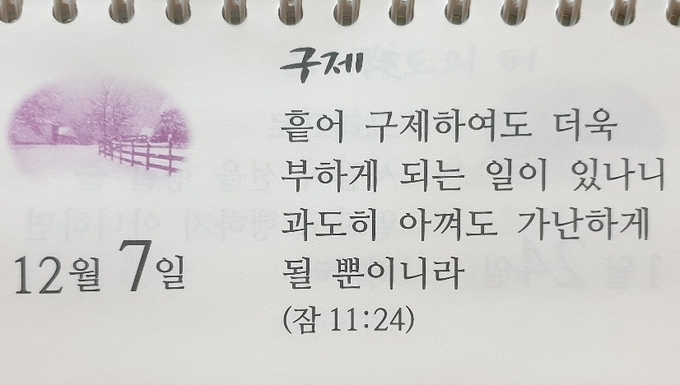 구제
흩어 구제하여도 더욱
부하게 되는 일이 있나니
과도히 아껴도 가난하게
될 뿐이니라
(잠 11:24)
12월 7일